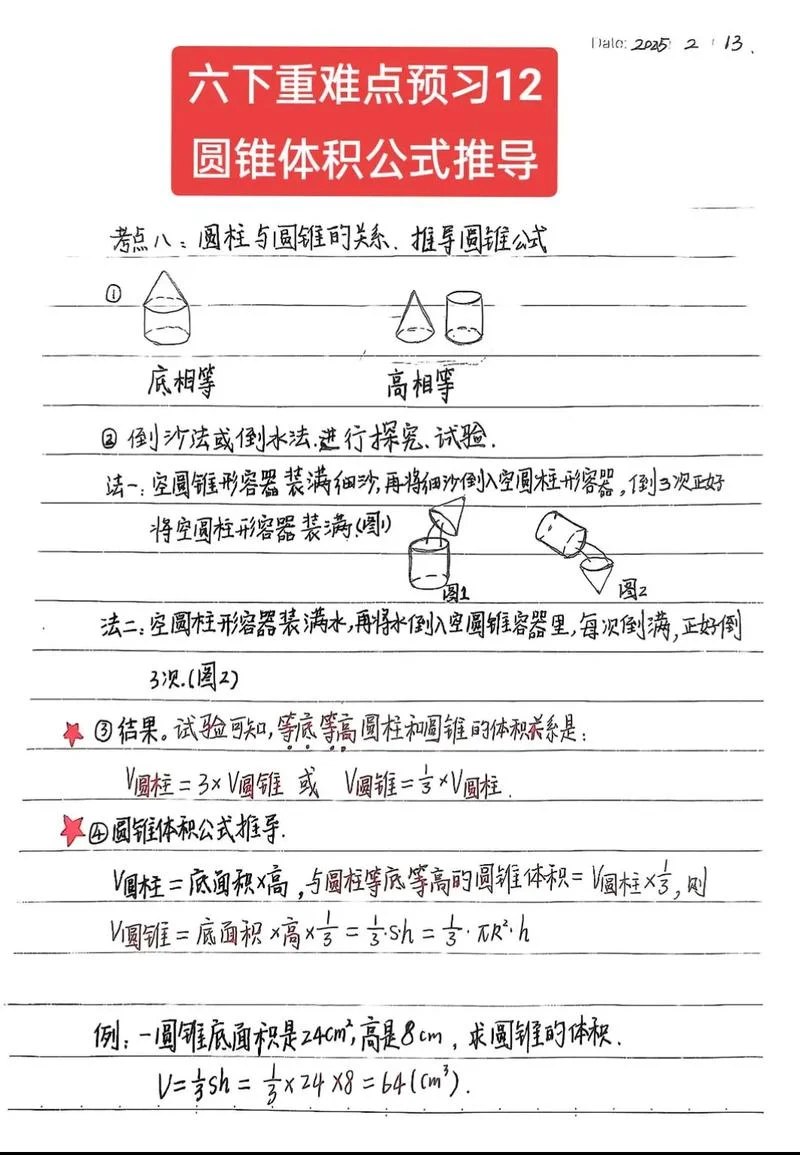 Date: 2025 2 13.
六下重难点预习12
圆锥体积公式推导
考点八：圆柱与圆锥的关系、推导圆锥公式
①
底相等 高相等
② 倒沙法或倒水法.进行探究、试验.
法一：空圆锥形容器装满细沙,再将细沙倒入空圆柱形容器，倒3次正好
将空圆柱形容器装满.(图1)
图1 图2
法二：空圆柱形容器装满水,再将水倒入空圆锥容器里，每次倒满，正好倒
3次.(图2)
③结果。试验可知,等底等高圆柱和圆锥的体积关系是：
V圆柱=3×V圆锥 或 V圆锥=1/3×V圆柱.
④圆锥体积公式推导.
V圆柱=底面积×高，与圆柱等底等高的圆锥体积=V圆柱×1/3，则
V圆锥=底面积×高×1/3=1/3·S·h=1/3·πR²·h
例：一圆锥底面积是24cm²,高是8cm，求圆锥的体积.
V=1/3Sh=1/3×24×8=64(cm³).